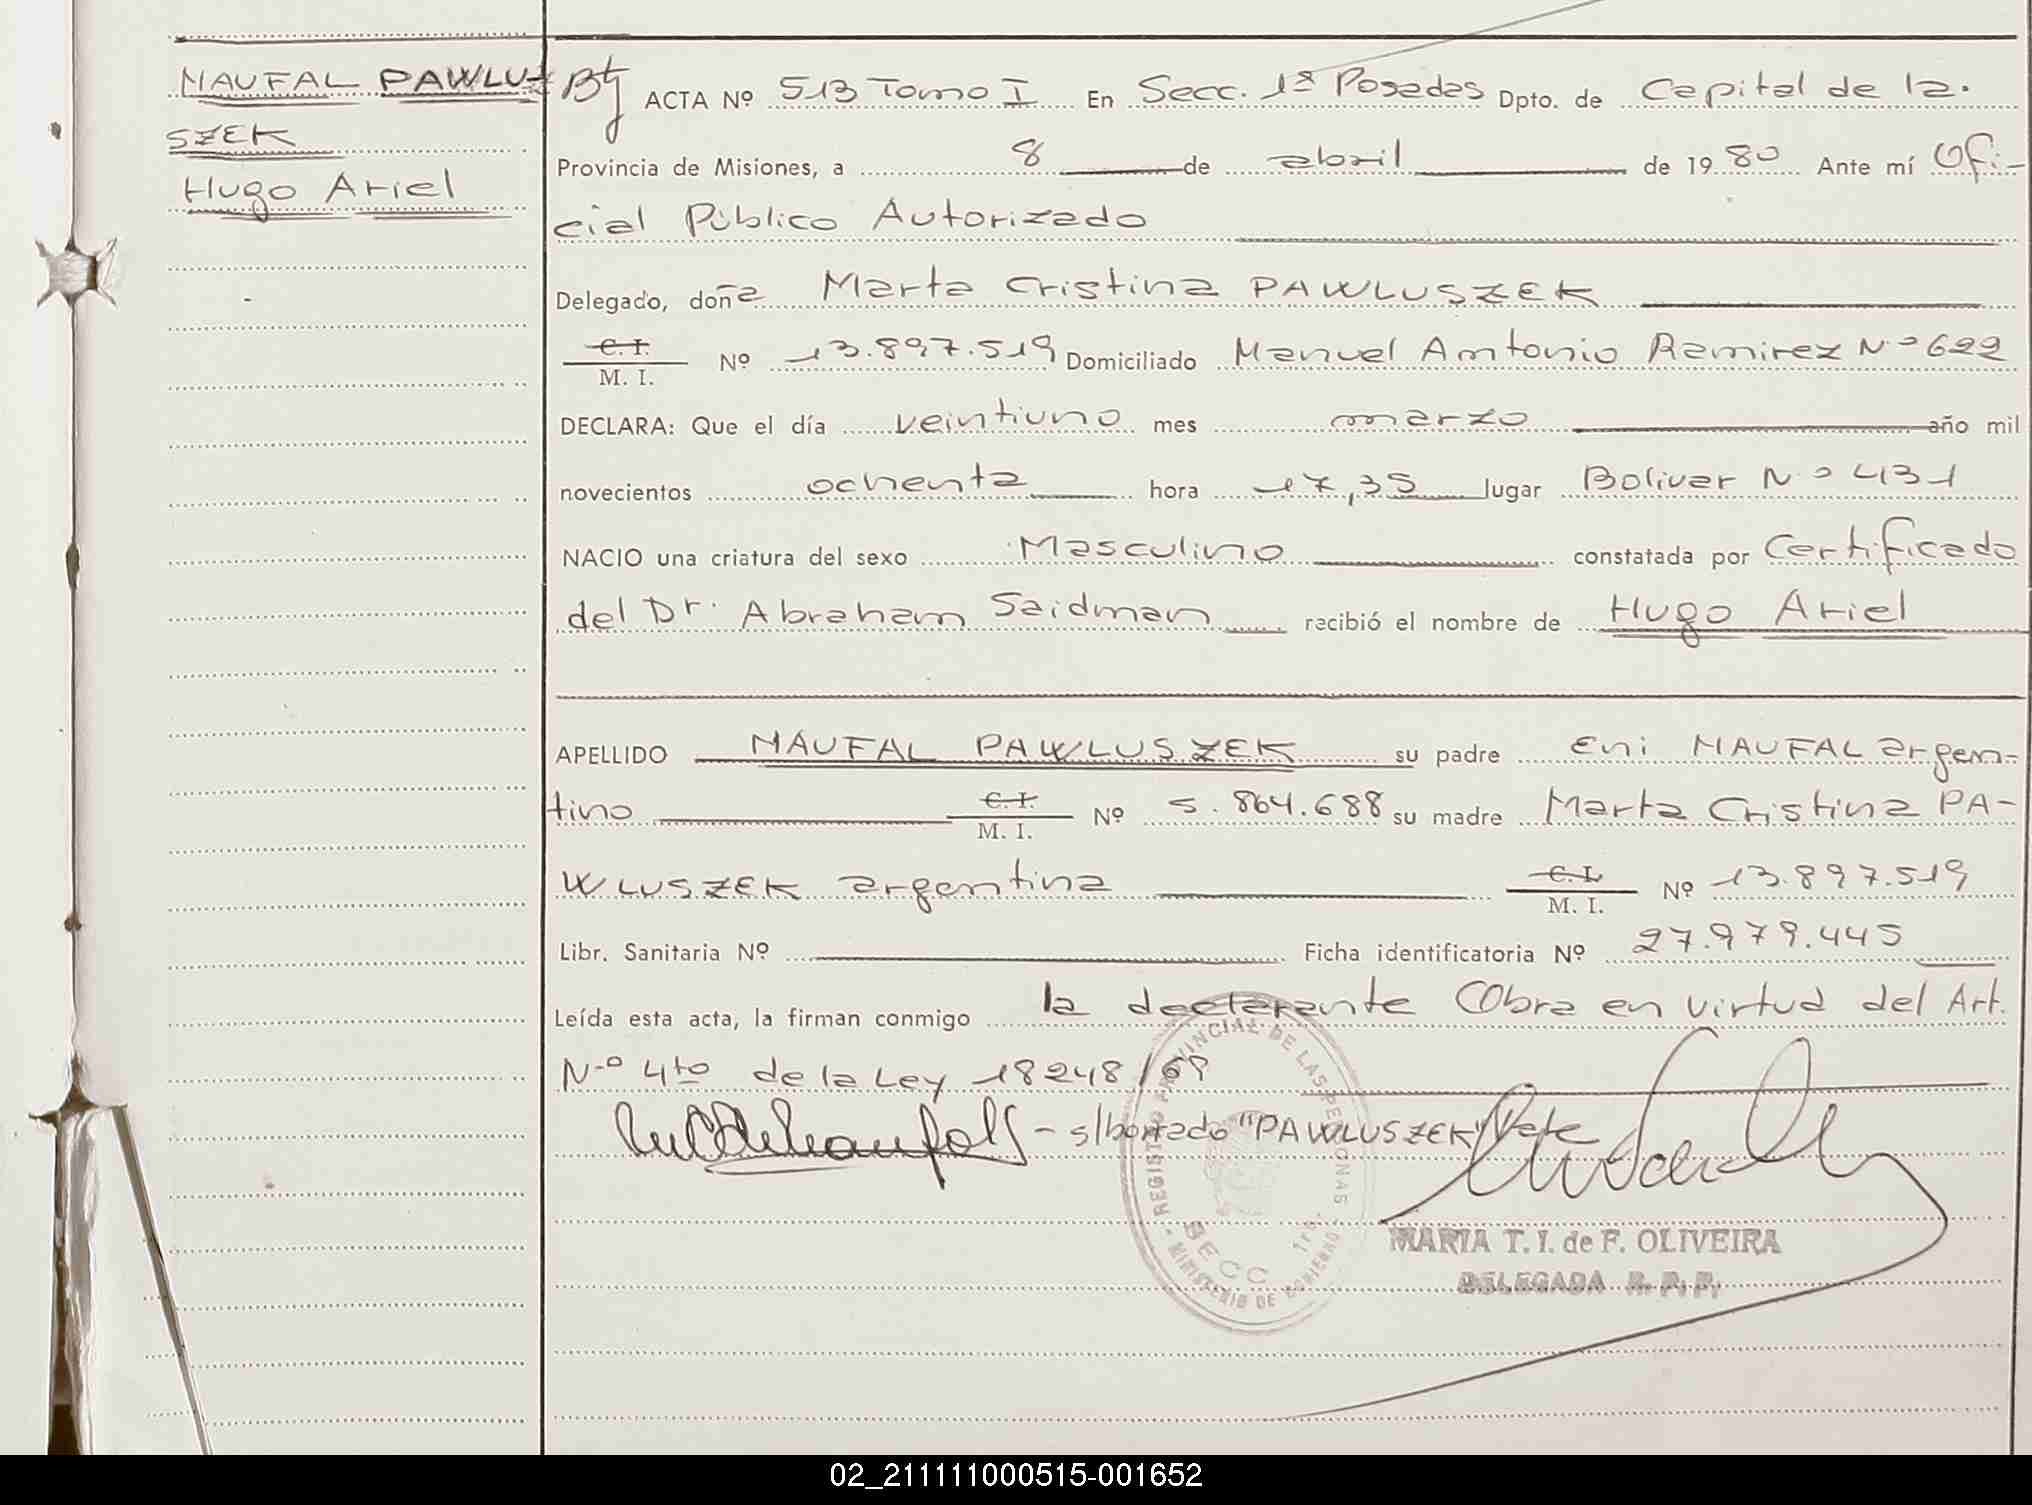 NAUFAL PAWLU-
SZEK
Hugo Ariel
ACTA Nº 513 Tomo I En Secc. 1ª Posadas Dpto. de Capital de la
Provincia de Misiones, a 8 de abril de 1980 Ante mí Ofi-
cial Público Autorizado
Delegado, doña Marta Cristina PAWLUSZEK
C. I.
M. I. Nº 13.897.519 Domiciliado Manuel Antonio Ramirez Nº 622
DECLARA: Que el día veintiuno mes marzo año mil
novecientos ochenta hora 17,35 lugar Bolivar Nº 431
NACIO una criatura del sexo Masculino constatada por Certificado
del Dr. Abraham Saidman recibió el nombre de Hugo Ariel
APELLIDO NAUFAL PAWLUSZEK su padre Eni NAUFAL argen-
tino C. I.
M. I. Nº 5.864.688 su madre Marta Cristina PA-
WLUSZEK argentina C. I.
M. I. Nº 13.897.519
Libr. Sanitaria Nº Ficha identificatoria Nº 27.979.445
Leída esta acta, la firman conmigo la declarante Obra en virtud del Art.
Nº 4to de la Ley 18248/69
- s/borrado "PAWLUSZEK" Vale
REGISTRO PROVINCIAL DE LAS PERSONAS
MINISTERIO DE GOBIERNO
SECC. 1ra.
MARIA T. I. de F. OLIVEIRA
DELEGADA R. P. P.
02_211111000515-001652